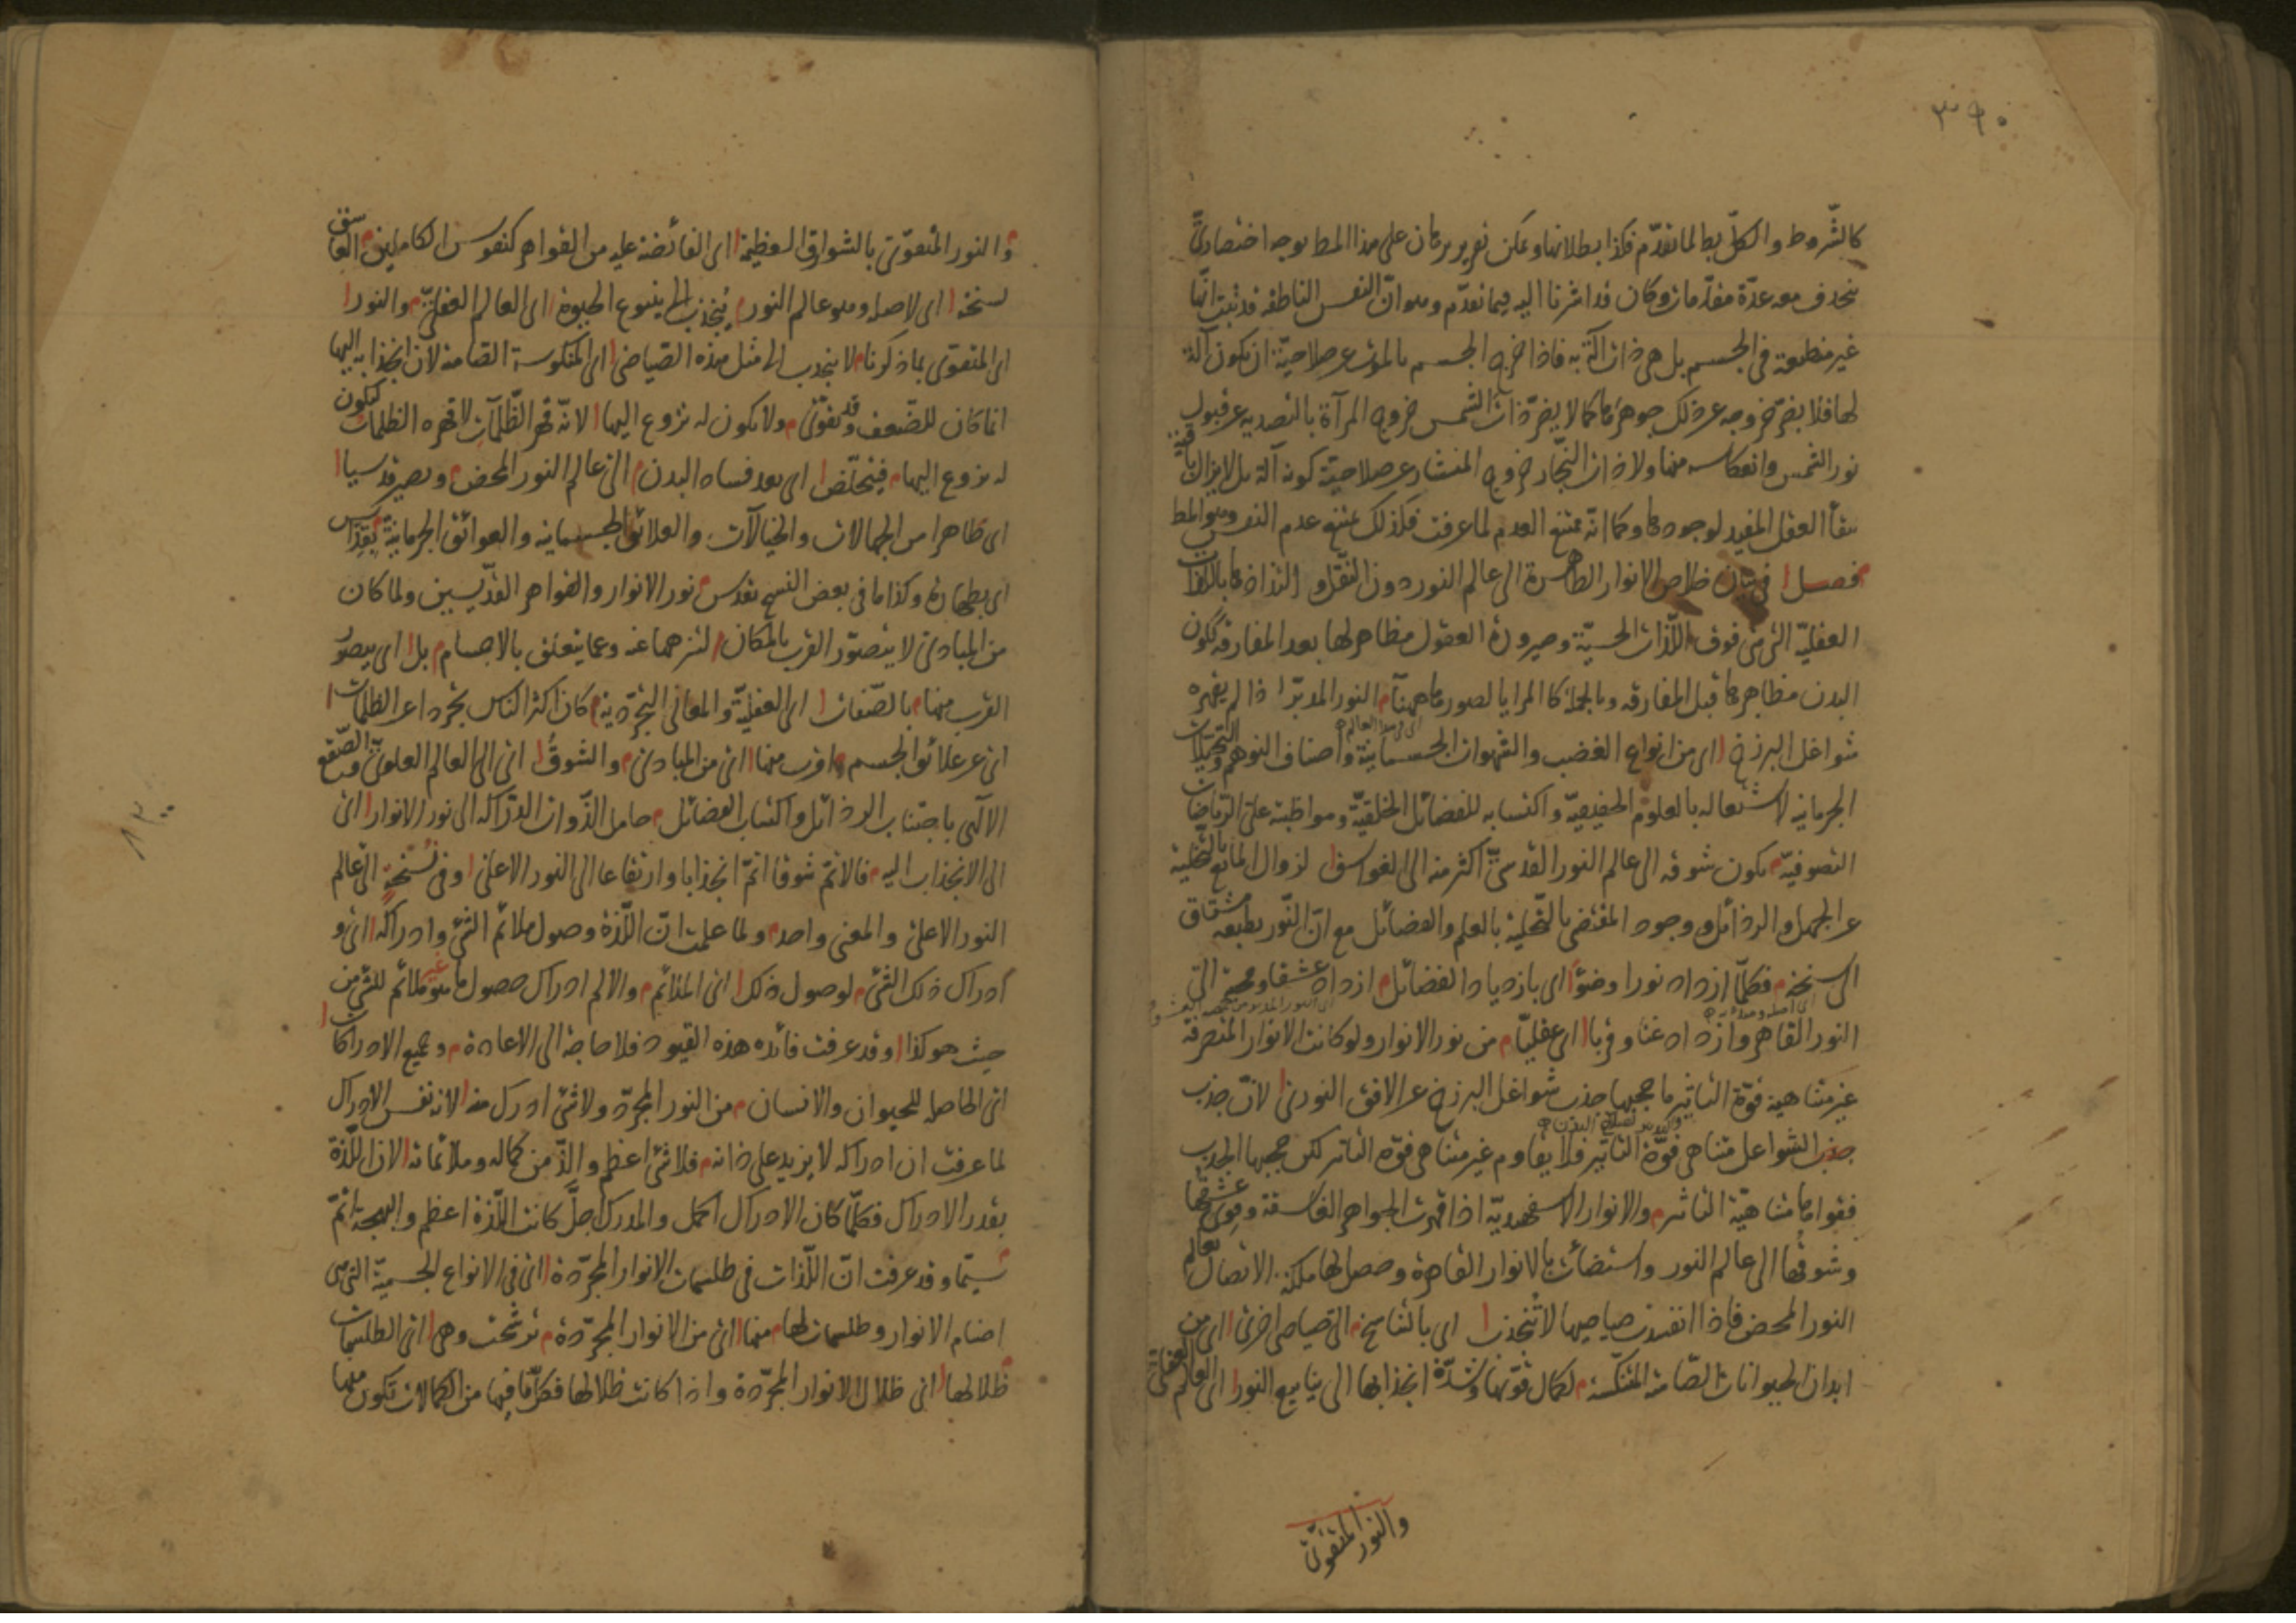 ٣٩٠
كالشروط والكل بط لما تقدم فكذا بطلانها ويمكن تقرير برهان على هذا المط بوجه اختصاري
ينحذف معه عدة مقدمات وكان قد اشرنا اليه فيما تقدم وهو ان النفس الناطقة قد ثبت انها
غير منطبعة في الجسم بل هي ذات آلة به فاذا خرج الجسم بالموت عن صلاحية ان يكون آلة
لها فلا يضر خروجه عن ذلك جوهرها كما لا يضر ذات الشمس خروج المرآة بالتصدية عن قبول
نور الشمس وانعكاسه منها ولا ذات النجار خروج المنشار عن صلاحية كونه آلة بل لا يزال باقية
ببقاء العقل المفيد لوجودها وكما انه ممتنع العدم لما عرفت فكذلك يمتنع عدم النفس وهو المط
فصل في بيان خلاص الانوار الطاهرة الى عالم النور دون النقل والتذاذها باللذات
العقلية التي هي فوق اللذات الحسية وصيرورة العقول مظاهر لها بعد المفارقة ككون
البدن مظاهرها قبل المفارقة وبالجملة كالمرايا لصورها ههنا النور المدبر اذا لم يقهره
شواغل البرزخ اى من انواع الغضب والشهوات الجسمانية واصناف التوهم والتخيلات
اى في هذا العالم
الجرمانية لاشتغاله بالعلوم الحقيقية واكتسابه للفضائل الخلقية ومواظبته على الرياضات
التصوفية يكون شوقه الى عالم النور القدسي اكثر منه الى الغواسق لزوال المانع بالتخلية
عن الجهل والرذائل ووجود المقتضى بالتحلية بالعلم والفضائل مع ان النور بطبعه مشتاق
الى سنخه فكلما ازداد نورا وضوءا اى بازدياد الفضائل ازداد عشقا ومحبة الى
النور القاهر وازداد غنا وقربا اى عقليا من نور الانوار ولو كانت الانوار المتصرفة
غير متناهية قوة التأثير ما حجبها جذب شواغل البرزخ عن الافق النوري لان جذب
جذب الشواغل متناهي قوة التأثير فلا يقاوم غير متناهي قوة التأثير لكن حجبها الجذب
فقواها متناهية التأثير والانوار الاسفهبدية اذا قهرت الجواهر الغاسقة وقوى عشقها
وشوقها الى عالم النور واستضائت بالانوار القاهرة وحصل لها ملكة الاتصال بعالم
النور المحض فاذا انفسدت صياصيها لا تنجذب اى بالتناسخ الى صياصي اخرى اى من
ابدان الحيوانات الصامتة المنتكسة لكمال قوتها وشدة انجذابها الى ينابيع النور اى العالم العقلي
والنور المتقوى
والنور المتقوى بالشوارق العظيمة اى الفائضة عليه من القواهر كنفوس الكاملين العاشق
لسنخه اى لاصله وهو عالم النور ينجذب الى ينبوع الحيوة اى العالم العقلي والنور
اى المتقوى بما ذكرنا لا ينجذب الى مثل هذه الصياصي اى المنكوسة الصامتة لان انجذابه اليها
انما كان للضعف وقد تقوى ولا يكون له نزوع اليها لانه قهر الظلمات لا قهره الظلمات ليكون
له نزوع اليها فيتخلص اى بعد فساد البدن الى عالم النور المحض ويصير قدسيا
اى طاهرا من الجهالات والخيالات والعلائق الجسمانية والعوائق الجرمانية بتقدس
اى بطهارة وكذا ما في بعض النسخ بقدس نور الانوار والقواهر القديسين ولما كان
من المبادى لا يتصور القرب بالمكان لتنزهها عنه وعما يتعلق بالاجسام بل اى يتصور
القرب منها بالصفات اى العقلية والمعاني التجردية كان اكثر الناس تجردا عن الظلمات
اى عن علائق الجسم اقرب منها اى من المبادى والشوق اى الى العالم العلوي والصقع
الآلهي باجتناب الرذائل واكتساب الفضائل حامل الذوات الدراكة الى نور الانوار اى
الى الانجذاب اليه فالاتم شوقا اتم انجذابا وارتفاعا الى النور الاعلى وفي نسخة الى عالم
النور الاعلى والمعنى واحد ولما علمت ان اللذة وصول ملائم الشئ وادراكه اى و
ادراك ذلك الشئ لوصول ذلك اى الملائم والالم ادراك حصول ما هو غير ملائم للشئ من
حيث هو كذا وقد عرفت فائدة هذه القيود فلا حاجة الى الاعادة وجميع الادراكات
اى الحاصلة للحيوان والانسان من النور المجرد ولا شئ ادرك منه لانه نفس الادراك
لما عرفت ان ادراكه لا يزيد على ذاته فلا شئ اعظم والذ من كماله وملائماته لان اللذة
بقدر الادراك فكلما كان الادراك اكمل والمدرك اجل كانت اللذة اعظم والبهجة اتم
سيما وقد عرفت ان اللذات في طلسمات الانوار المجردة اى في الانواع الجسمية التي هي
اصنام الانوار وطلسمات لها منها اى من الانوار المجردة ترشحت وهى اى الطلسمات
ظلالها اى ظلال الانوار المجردة واذا كانت ظلالها فكل ما فيها من الكمالات تكون منها